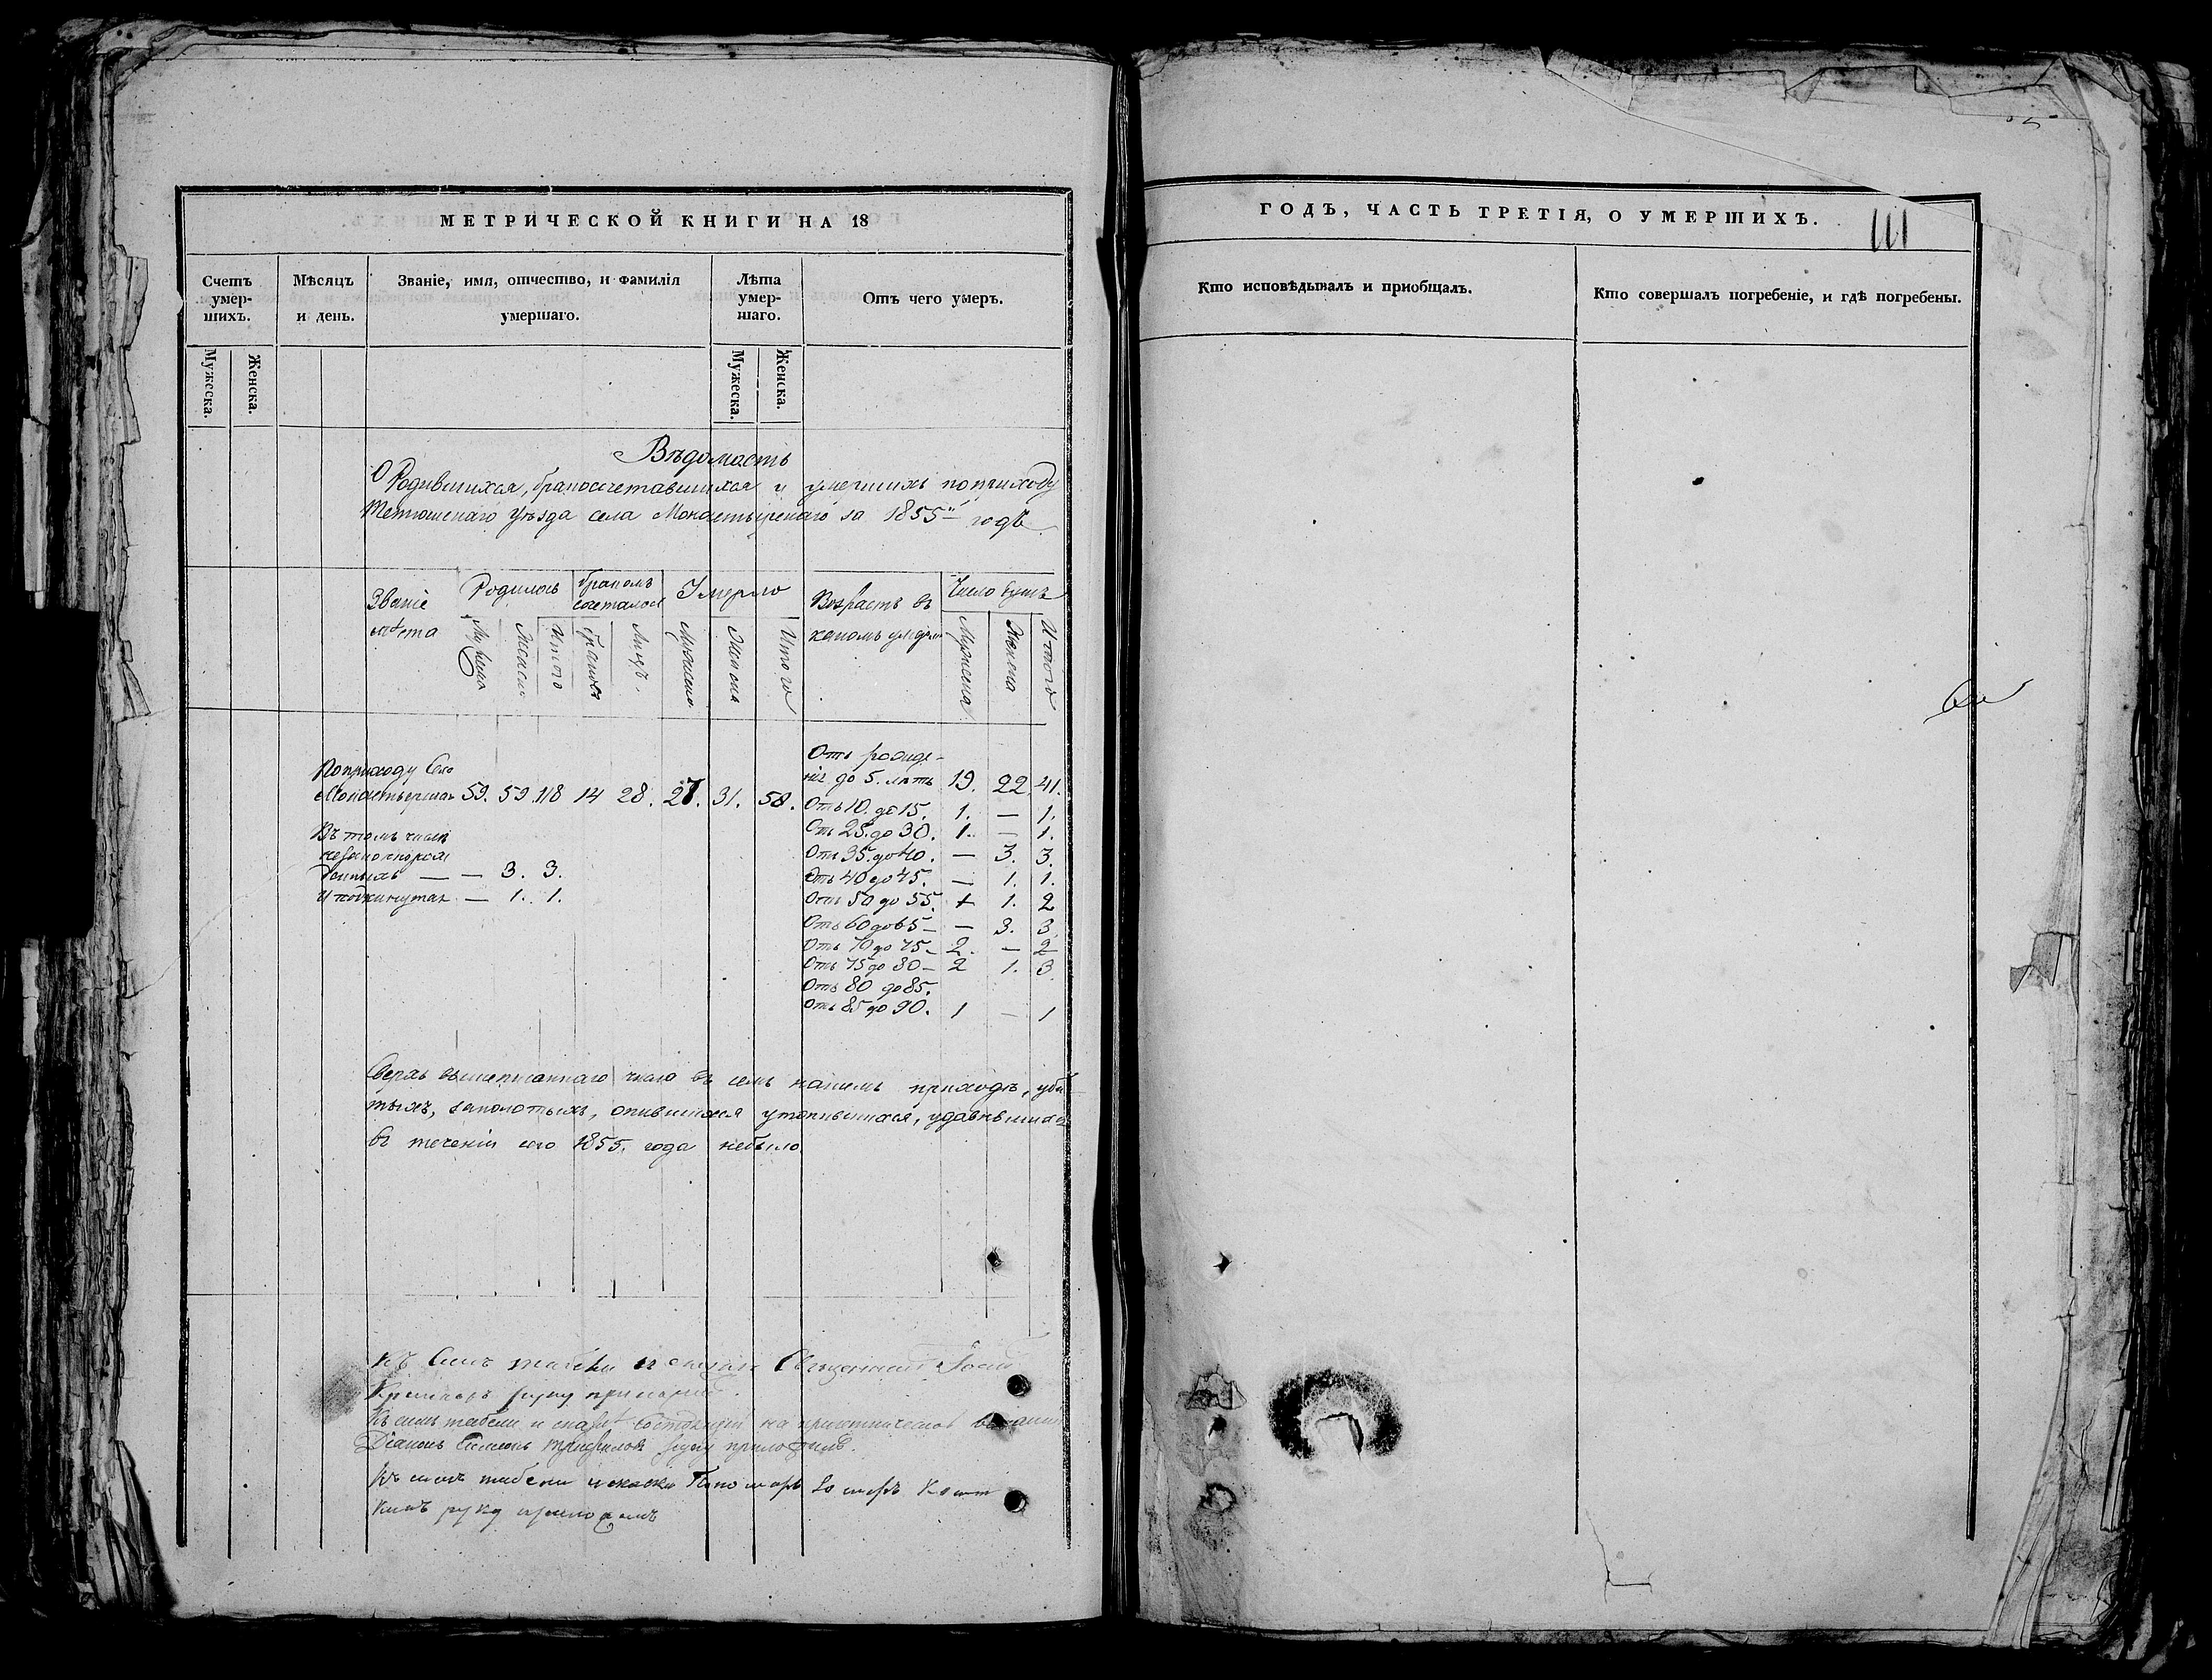 МЕТРИЧЕСКОЙ КНИГИ НА 18
Счетъ умер-шихъ.
Мѣсяцъ и день.
Званіе, имя, отчество, и фамилія умершаго.
Лѣта умер-шаго.
Отъ чего умеръ.
Мужеска.
Женска.
Мужеска.
Женска.
Вѣдомасть
О Родившихся, бракосочетавшихся и умершихъ поприходу
Тетюшскаго Уѣзда села Монастырскаго за 1855й годъ
Званіе мѣста
Родилось
бракомъ сочеталось
Умерло
Возрастъ въ коемъ умерли
Число душъ
Мужеска
Женска
Итого
браковъ
Лицъ.
Мужеска
Женска
Итого
Мужеска
Женска
Итого
Поприходу Села
Монастырскаго 59. 59. 118 14 28. 27. 31. 58.
Въ томъ числѣ
незаконнорож
денныхъ — — 3. 3.
и подкинутая — 1. 1.
Отъ рожде-
нія до 5. лѣтъ 19. 22. 41.
Отъ 10. до 15. 1. — 1.
Отъ 25. до 30. 1. — 1.
Отъ 35. до 40. — 3. 3.
Отъ 40 до 45. — 1. 1.
Отъ 50 до 55. 1 1. 2
Отъ 60 до 65 — — 3. 3.
Отъ 70 до 75 — 2. — 2
Отъ 75 до 80 — 2 1. 3.
Отъ 80 до 85.
Отъ 85 до 90. 1 — 1
Сверхъ вышеписаннаго числа въ семъ нашемъ приходѣ, уби
тыхъ, заколотыхъ, опившихся утопившихся, удавившихся
въ теченіи сего 1855. года небыло.
Къ симъ табели и сказкѣ Священникъ
руку приложилъ.
Къ симъ табели и сказкѣ состоящій на причетническомъ
Діаконъ Симеонъ руку приложилъ.
Къ симъ табели и сказки Пономарь
руку приложилъ
ГОДЪ, ЧАСТЬ ТРЕТІЯ, О УМЕРШИХЪ.
111
Кто исповѣдывалъ и пріобщалъ.
Кто совершалъ погребеніе, и гдѣ погребены.